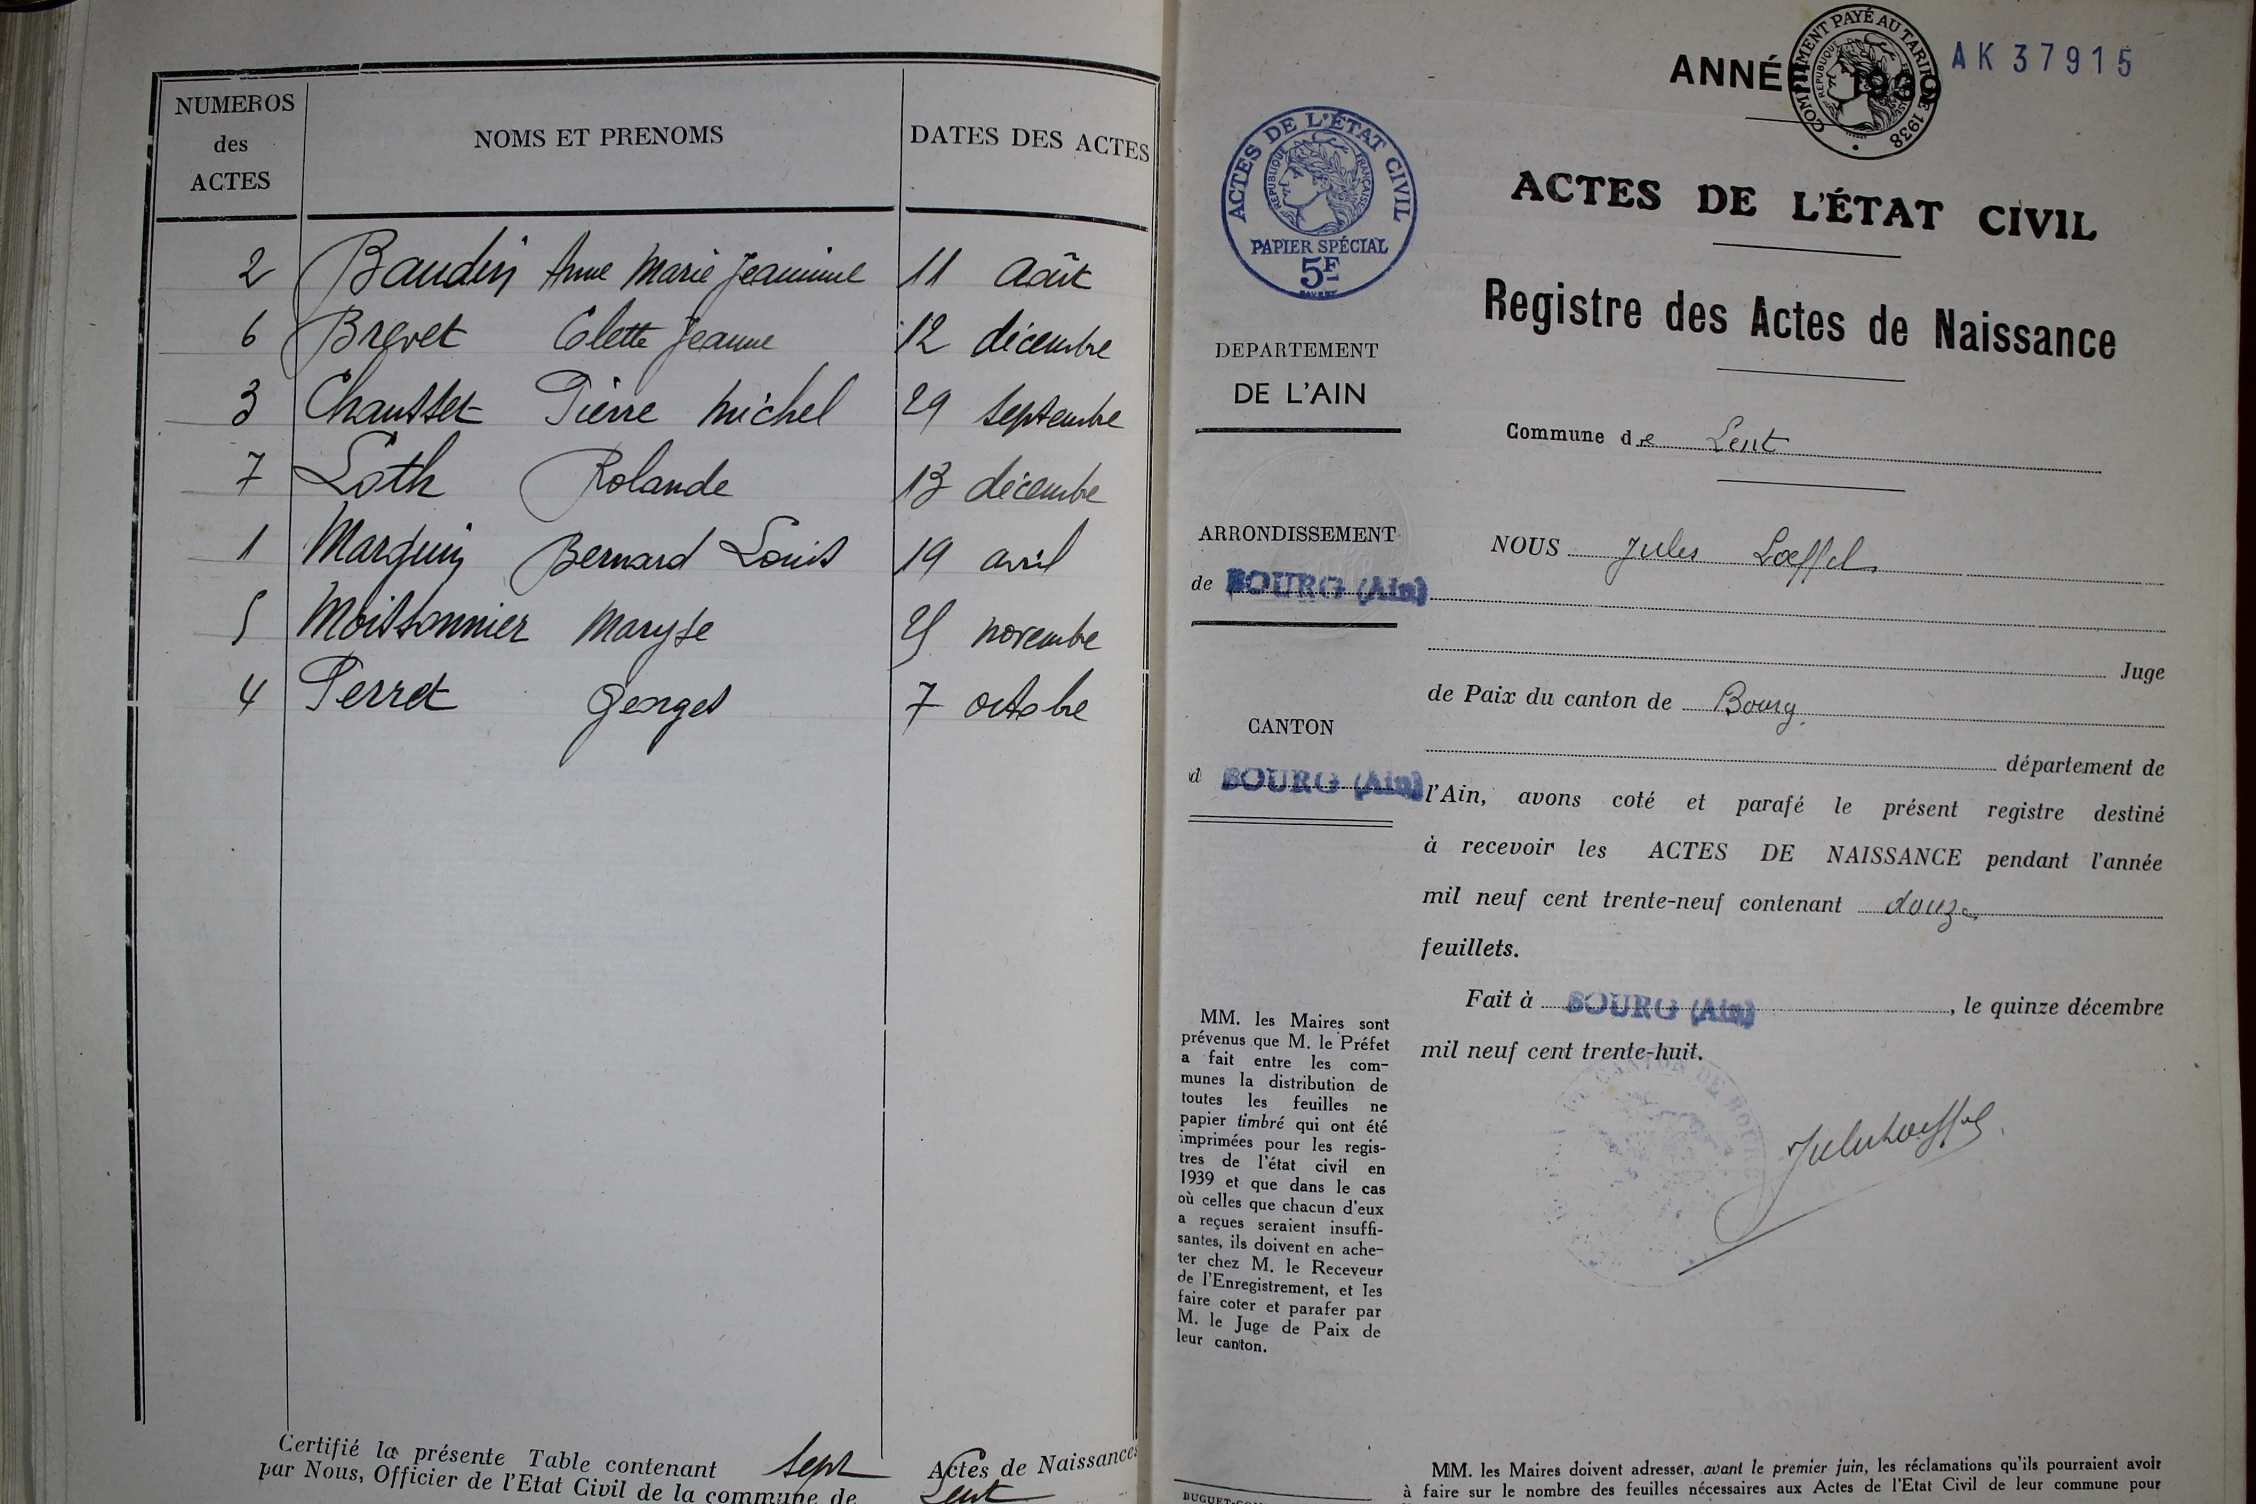 NUMEROS
des
ACTES
NOMS ET PRENOMS
DATES DES ACTES
2 Baudin Anne Marie Jeannine 11 Août
6 Brevet Colette Jeanne 12 décembre
3 Chausset Pierre Michel 29 septembre
7 Loth Rolande 13 décembre
1 Marguin Bernard Louis 19 avril
5 Moissonnier Maryse 25 novembre
4 Perret Georges 7 octobre
Certifié la présente Table contenant sept Actes de Naissances
par Nous, Officier de l'Etat Civil de la commune de Lent
ANNÉE 1939
COMPLÉMENT PAYÉ AU TARIF DE 1938
AK 37915
ACTES DE L'ÉTAT CIVIL
RÉPUBLIQUE FRANÇAISE
PAPIER SPÉCIAL
5F
DEPARTEMENT
DE L'AIN
ARRONDISSEMENT
de BOURG (Ain)
CANTON
d BOURG (Ain)
MM. les Maires sont
prévenus que M. le Préfet
a fait entre les com-
munes la distribution de
toutes les feuilles ne
papier timbré qui ont été
imprimées pour les regis-
tres de l'état civil en
1939 et que dans le cas
où celles que chacun d'eux
a reçues seraient insuffi-
santes, ils doivent en ache-
ter chez M. le Receveur
de l'Enregistrement, et les
faire coter et parafer par
M. le Juge de Paix de
leur canton.
ACTES DE L'ÉTAT CIVIL
Registre des Actes de Naissance
Commune de Lent
NOUS Jules Loeffel
Juge
de Paix du canton de Bourg
département de
l'Ain, avons coté et parafé le présent registre destiné
à recevoir les ACTES DE NAISSANCE pendant l'année
mil neuf cent trente-neuf contenant douze
feuillets.
Fait à BOURG (Ain), le quinze décembre
mil neuf cent trente-huit.
CANTON DE BOURG
Jules Loeffel
MM. les Maires doivent adresser, avant le premier juin, les réclamations qu'ils pourraient avoir
à faire sur le nombre des feuilles nécessaires aux Actes de l'Etat Civil de leur commune pour